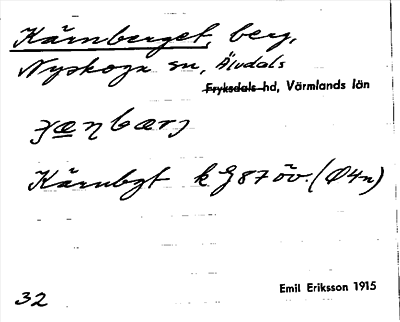 Kärnberget, berg,
Nyskoga sn, Älvdals
Fryksdals hd, Värmlands län
Kärnbgt k G 87 öv. (Ø4n)
32
Emil Eriksson 1915